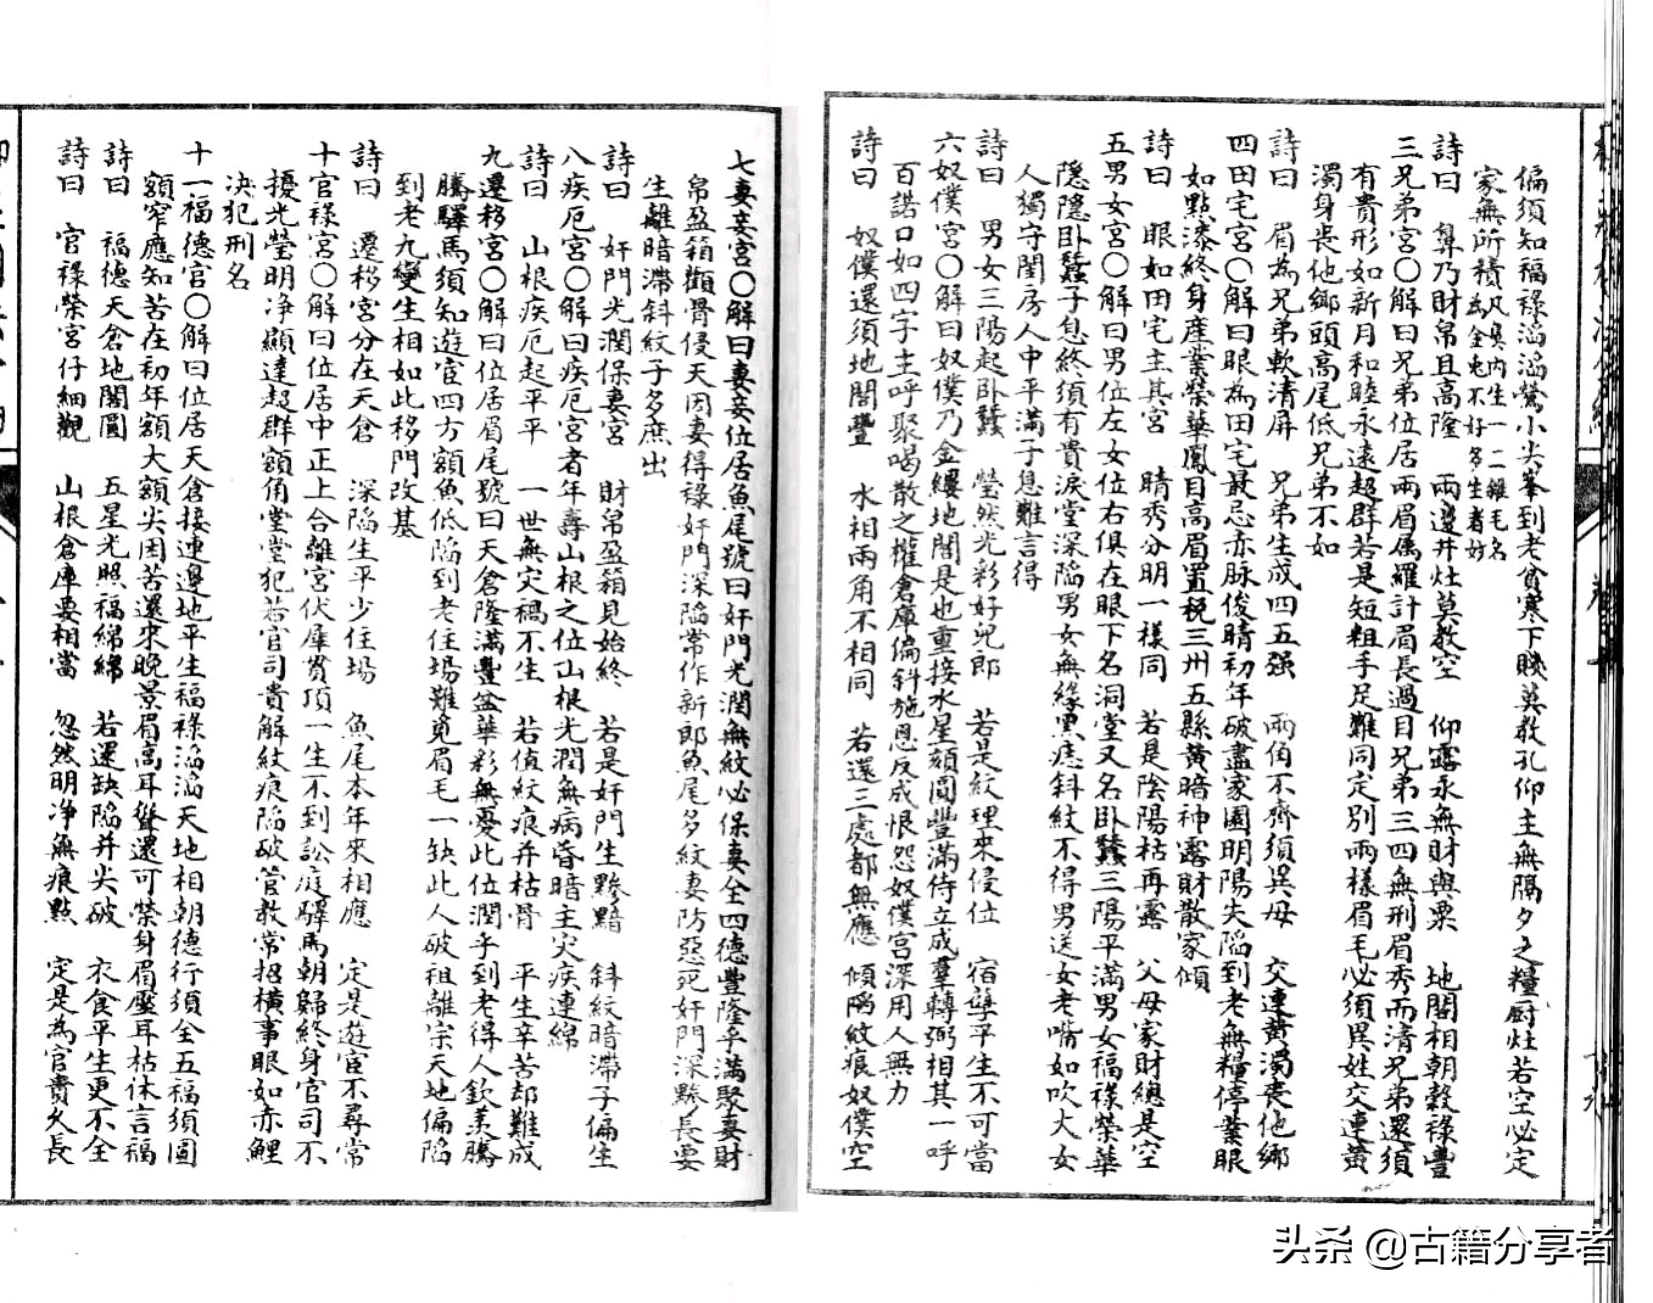 偏須知福祿滔滔鶯小尖峯到老貧寒下睽莫教孔仰主無隔夕之糧厨灶若空必定
家無所積凡鼻内生一二雜毛名
為金鬼不好多生者妙
詩曰　鼻乃財帛且高隆　兩邊井灶莫教空　仰露永無財與粟　地閣相朝穀祿豐
三兄弟宮〇解曰兄弟位居兩眉属羅計眉長過目兄弟三四無刑眉秀而清兄弟還須
有貴形如新月和睦永遠超群若是短粗手足難同定別兩樣眉毛必須異姓交連黃
濁身丧他鄉頭高尾低兄弟不如
詩曰　眉為兄弟軟清屏　兄弟生成四五强　兩角不齊須異母　交連黃濁丧他鄉
四田宅宮〇解曰眼為田宅最忌赤脉侵睛初年破盡家園明陽失陷到老無糧停業眼
如點漆終身産業榮華鳳目高眉置税三州五縣黃暗神露財散家傾
詩曰　眼如田宅主其宮　睛秀分明一樣同　若是陰陽枯再露　父母家財總是空
五男女宮〇解曰男位左女位右俱在眼下名洞堂又名卧蠶三陽平滿男女福祿榮華
隱隱卧蠶子息終須有貴淚堂深陷男女無緣黑痣斜紋不得男送女老嘴如吹火女
人獨守閨房人中平滿子息難言得
詩曰　男女三陽起卧蠶　瑩然光彩好兒郎　若是紋理來侵位　宿孽平生不可當
六奴僕宮〇解曰奴僕乃金縷地閣是也重接水星頦圓豐滿侍立成羣轉弼相其一呼
百諾口如四字主呼聚喝散之權倉庫偏斜施恩反成恨怨奴僕宮深用人無力
詩曰　奴僕還須地閣豐　水相兩角不相同　若還三處都無應　傾陷紋痕奴僕空
七妻妾宮〇解曰妻妾位居魚尾號曰奸門光潤無紋必保妻全四德豐隆乎滿聚妻財
帛盈箱顴骨侵天因妻得祿奸門深陷常作新郎魚尾多紋妻防惡死奸門深黲長要
生離暗滯斜紋子多庶出
詩曰　奸門光潤保妻宮　財帛盈箱見始終　若是奸門生黲黯　斜紋暗滯子偏生
八疾厄宮〇解曰疾厄宮者年壽山根之位山根光潤無病昏暗主灾疾連綿
詩曰　山根疾厄起平平　一世無灾禍不生　若值紋痕并枯骨　平生辛苦却難成
九遷移宮〇解曰位居眉尾號曰天倉隆滿豐盆華彩無憂此位潤乎到老得人欽羡騰
騰驛馬須知遊宦四方額魚低陷到老住塲難覓眉毛一缺此人破祖離宗天地偏陷
到老九變生相如此移門改基
詩曰　遷移宮分在天倉　深陷生平少住塲　魚尾本年來相應　定是遊宦不尋常
十官祿宮〇解曰位居中正上合離宮伏犀貫頂一生不到訟庭驛馬朝歸終身官司不
擾光瑩明净顯達超群額角堂堂犯若官司貴解紋痕陷破管教常招横事眼如赤鯉
决犯刑名
十一福德宮〇解曰位居天倉接連邊地平生福祿滔滔天地相朝德行須全五福須圓
額窄應知苦在初年額大額尖因苦還來晚景眉高耳聳還可榮身眉壓耳枯休言福
詩曰　福德天倉地閣圓　五星光照福綿綿　若還缺陷并尖破　衣食平生更不全
詩曰　官祿榮宮仔細觀　山根倉庫要相當　忽然明净無痕點　定是為官貴久長
头条 @古籍分享者